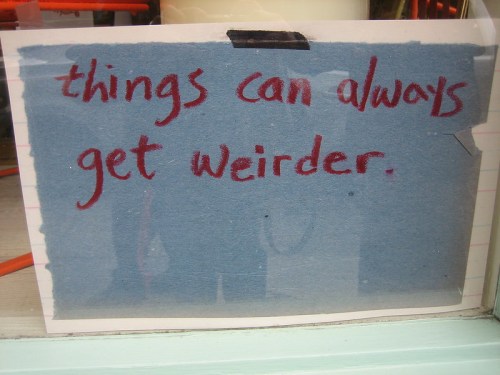 things can always
get weirder.